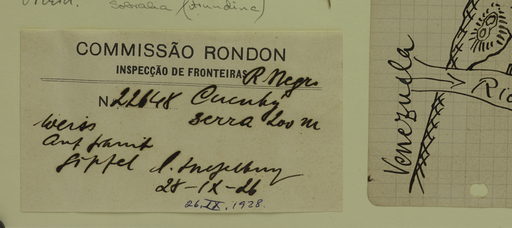 Sobralia (Arundina)
COMMISSÃO RONDON
INSPECÇÃO DE FRONTEIRAS R. Negro
N 22648 Cucuhy
serra 200 m
weiss
Auf Granit
Gipfel
28-IX-26
26.IX.1928.
Venezuela
Rio